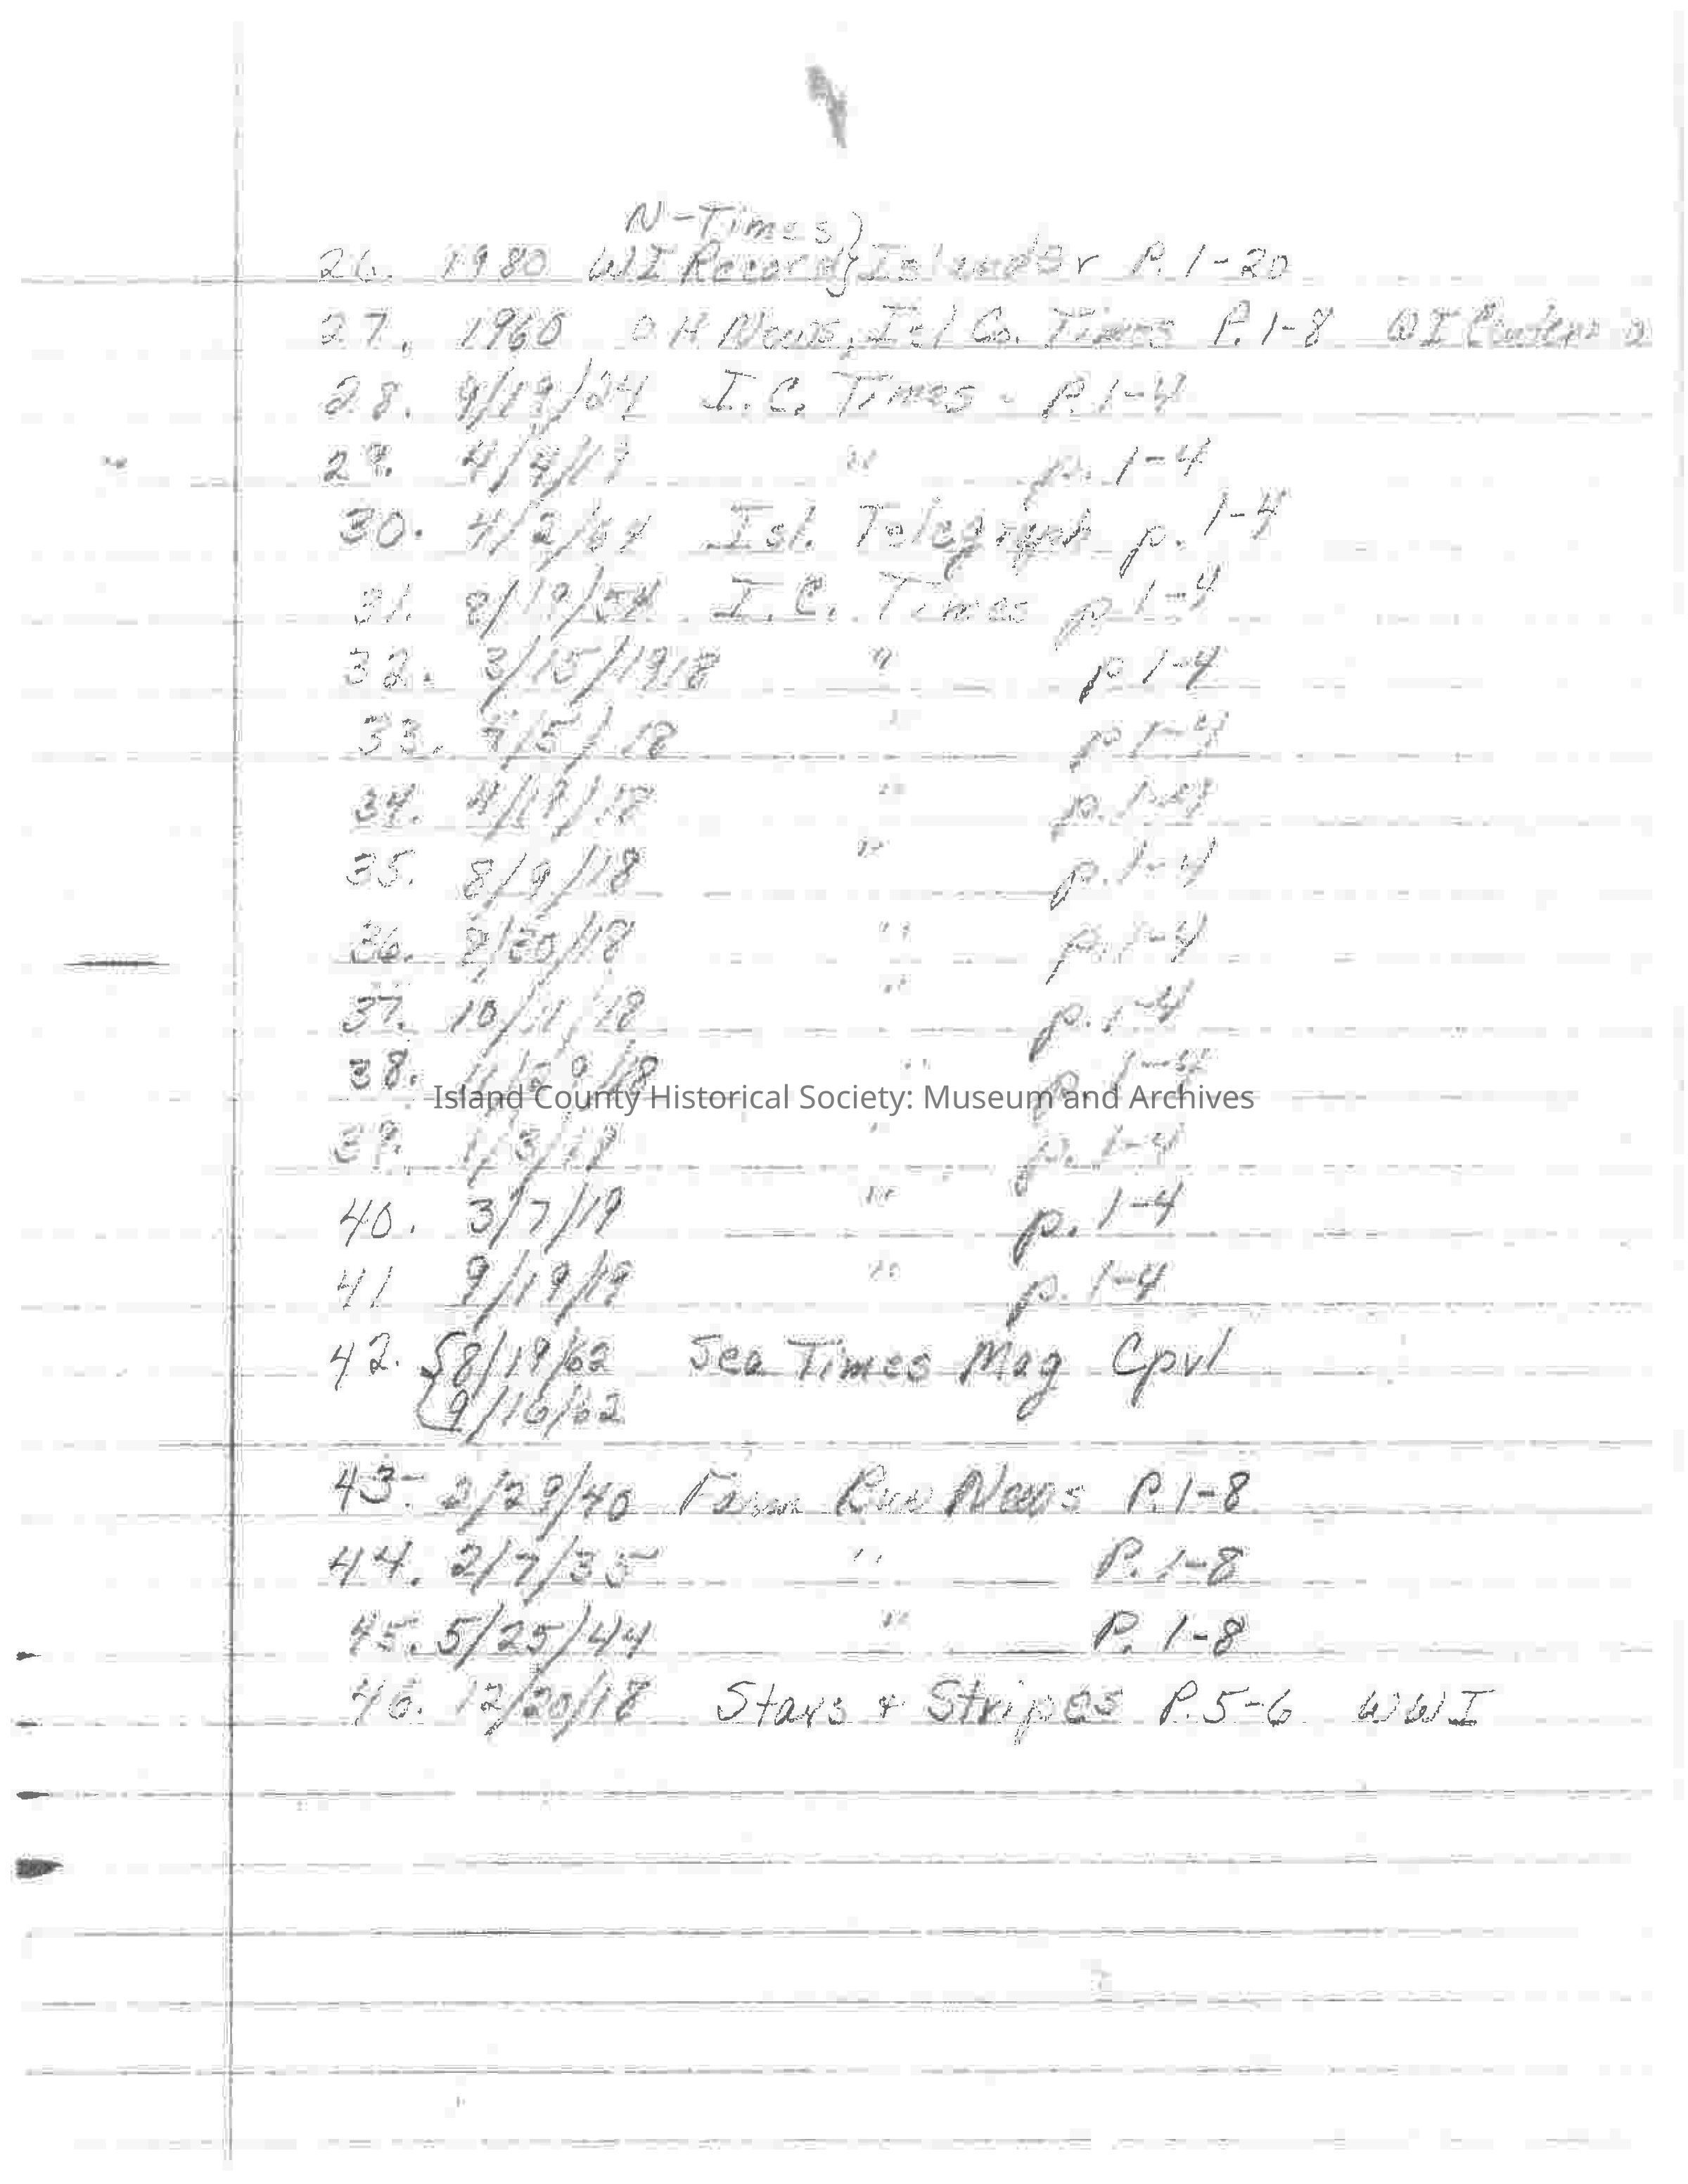 N-Times
26. 1980 WI Record } Islander P. 1-20
27. 1960 OH News, Isl Co. Times P. 1-8 WI
28. 9/19/24 I.C. Times - P. 1-4
29. " p. 1-4
30. 4/2/64 Isl. Telegraph p. 1-4
31. I.C. Times p 1-4
32. 3/15/1918 " p 1-4
33. /18 " p 1-4
34. 4/19/18 " p. 1-4
35. 8/9/18 " p. 1-4
36. 8/30/18 " p. 1-4
37. 10/11/18 " p. 1-4
38. /18 " p. 1-4
Island County Historical Society: Museum and Archives
39. 1/3/19 " p. 1-4
40. 3/7/19 " p. 1-4
41 9/19/19 " p. 1-4
42. { 8/19/62 Sea Times Mag Cpvl
9/16/62
43. 2/29/40 Farm Bur News P. 1-8
44. 2/7/35 " P. 1-8
45. 5/25/44 " P. 1-8
46. 12/20/18 Stars & Stripes P. 5-6 WWI